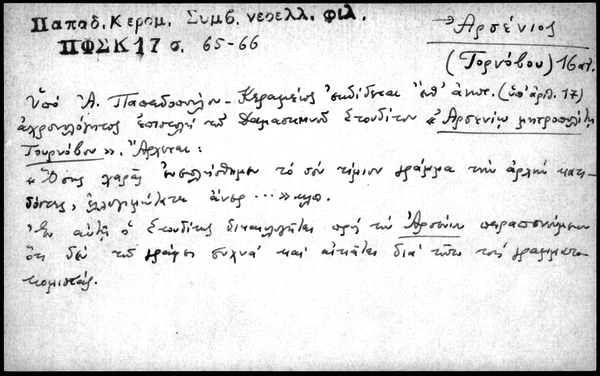 Παπαδ. Κεραμ. Συμβ. νεοελλ. φιλ.
ΠΦΣΚ 17 σ. 65-66
→ Ἀρσένιος
(Τορνόβου) 16 αι.
Ὑπό Ἀ. Παπαδοπούλου-Κεραμέως ἐκδίδεται (ὑπ' ἀρθ. 17)
ἀχρονολόγητος ἐπιστολή τοῦ Δαμασκηνοῦ Στουδίτου «Ἀρσενίῳ μητροπολίτῃ
Τουρνόβου». Ἄρχεται:
«Ὅσης χαρᾶς ἐνεπλήσθημεν τό σόν τίμιον γράμμα τήν ἀρχήν
ἐλλογιμώτατε ἄνερ ...» κλπ.
Ἐν αὐτῇ ὁ Στουδίτης δικαιολογεῖται πρός τόν Ἀρσένιον παραπονούμενον
ὅτι δέν τοῦ γράφει συχνά καί αἰτιᾶται διά τοῦτο τούς γραμματο-
κομιστάς.